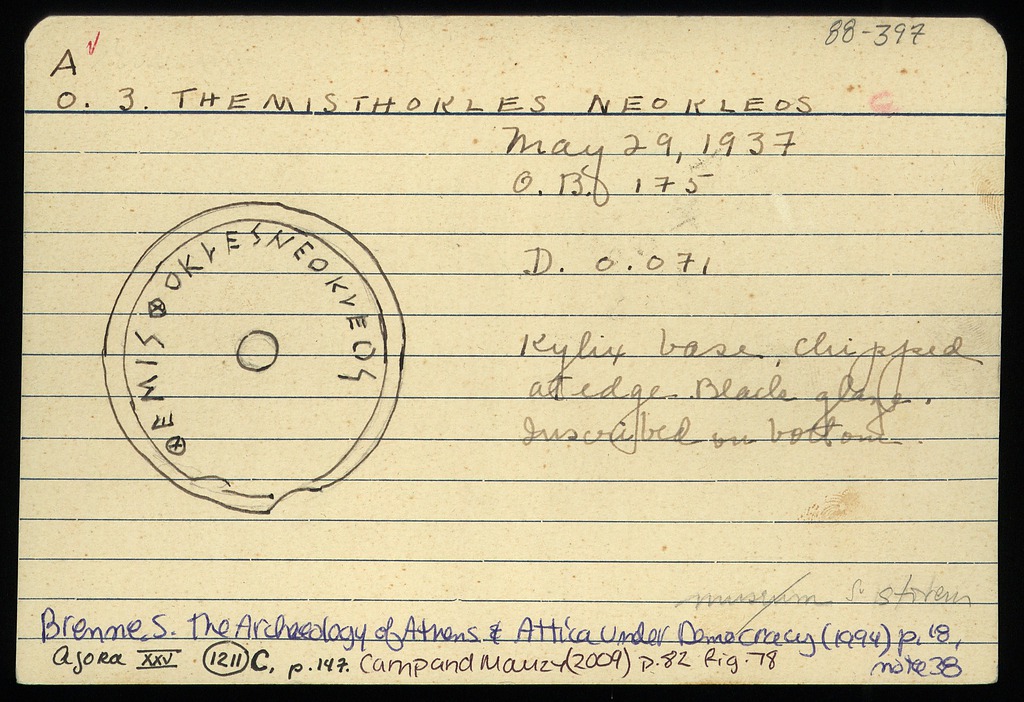 88-397
A
O. 3. THEMISTHOKLES NEOKLEOS
May 29, 1937
O. B. 175
D. 0.071
ⴲEMISⴲOKLESNEOKLEOS
Kylix base, chipped
at edge. Black glaze.
Inscribed on bottom.
museum S. storem
Brenne, S. The Archaeology of Athens & Attica Under Democracy (1994) p. 18,
note 38
Agora XXV 1211 C, p. 147. Camp and Mauzy (2009) p. 82 fig. 78